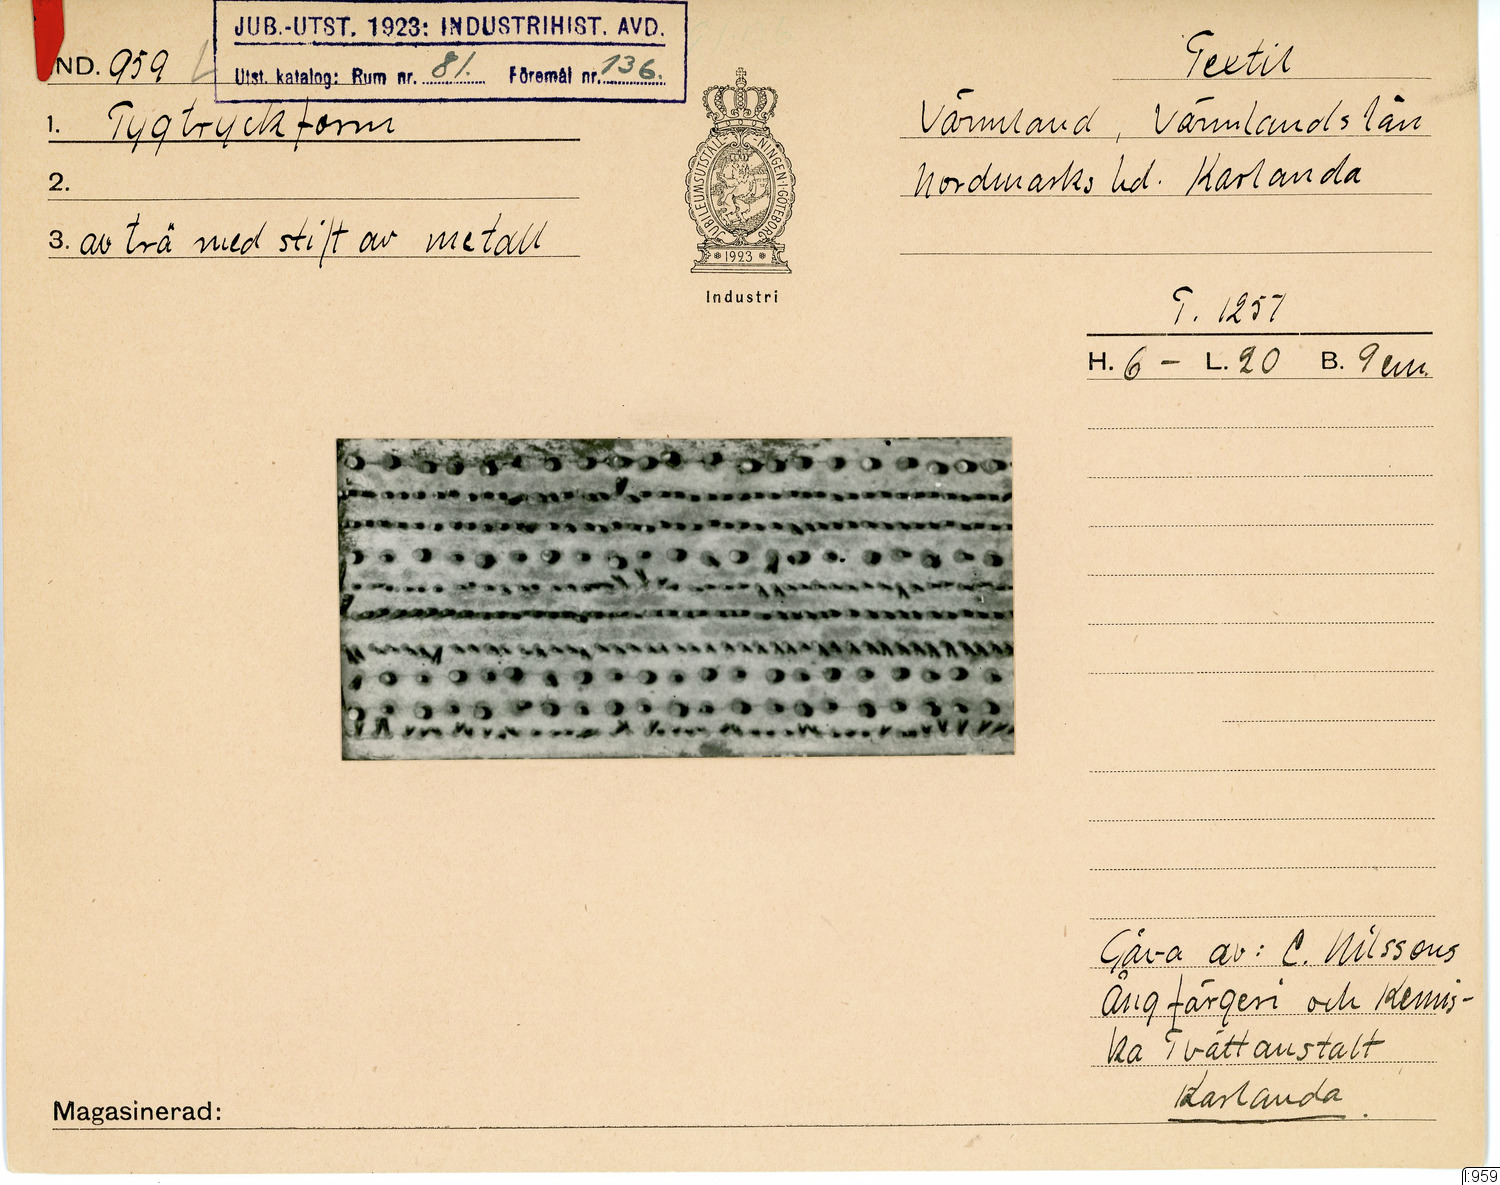 JUB.-UTST. 1923: INDUSTRIHIST. AVD.
Utst. katalog: Rum nr. 81. Föremål nr. 136.
IND. 959
1. Tygtryckform
2.
3. av trä med stift av metall
JUBILEUMSUTSTÄLLNINGEN I GÖTEBORG
1923
Industri
Textil
Värmland, Värmlands län
Nordmarks hd. Karlanda
T. 1257
H. 6 - L. 20 B. 9 cm.
Gåva av: C. Nilssons
Ångfärgeri och Kemis-
ka Tvättanstalt
Karlanda.
Magasinerad:
I:959